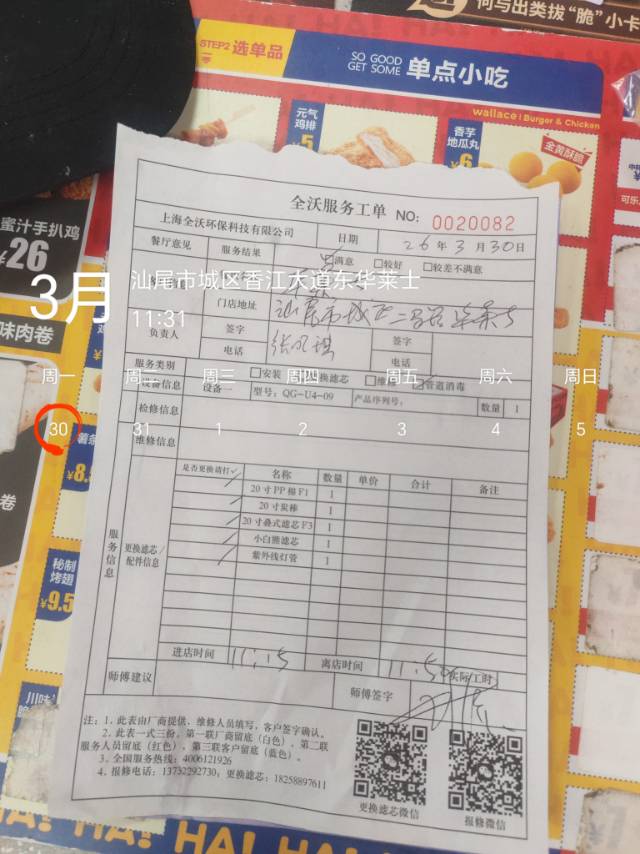 何与出类拔“脆”小卡
STEP2 选单品
SO GOOD
GET SOME 单点小吃
wallace | Burger & Chicken
元气
鸡排
5
香芋
地瓜丸
¥6
金黄酥脆
蜜汁手扒鸡
¥26
味肉卷
全沃服务工单 NO: 0020082
上海全沃环保科技有限公司 日期 26年3月30日
餐厅意见 服务结果 满意 较好 较差不满意
3月 汕尾市城区香江大道东华莱士
11:31
门店地址 汕尾市城区二马路华莱士
负责人 签字 签字
电话 电话
服务类别 安装 换滤芯 维 管道消毒
周一 周二 周三 周四 周五 周六 周日
设备信息 设备一 型号: QG-U4-09 产品序列号: 数量 1
检修信息
30 31 1 2 3 4 5
维修信息
是否更换请打✓ 名称 数量 单价 合计 备注
20寸PP棉F1 1
20寸炭棒 1
20寸叠式滤芯F3 1
小白熊滤芯 1
紫外线灯管 1
服务信息
更换滤芯/
配件信息
薯条
¥8.
秘制
烤翅
¥9.5
川味
进店时间 11:15 离店时间 11:50 实际/工时
师傅建议 师傅签字
注: 1, 此表由厂商提供、维修人员填写, 客户签字确认。
2, 此表一式三份, 第一联厂商留底（白色）、第二联
服务人员留底（红色）、第三联客户留底（蓝色）。
3, 全国服务热线: 4006121926
4, 报修电话: 13752292730; 更换滤芯: 18258897611
更换滤芯微信 报修微信
HA! HA! HA! HA! HA!